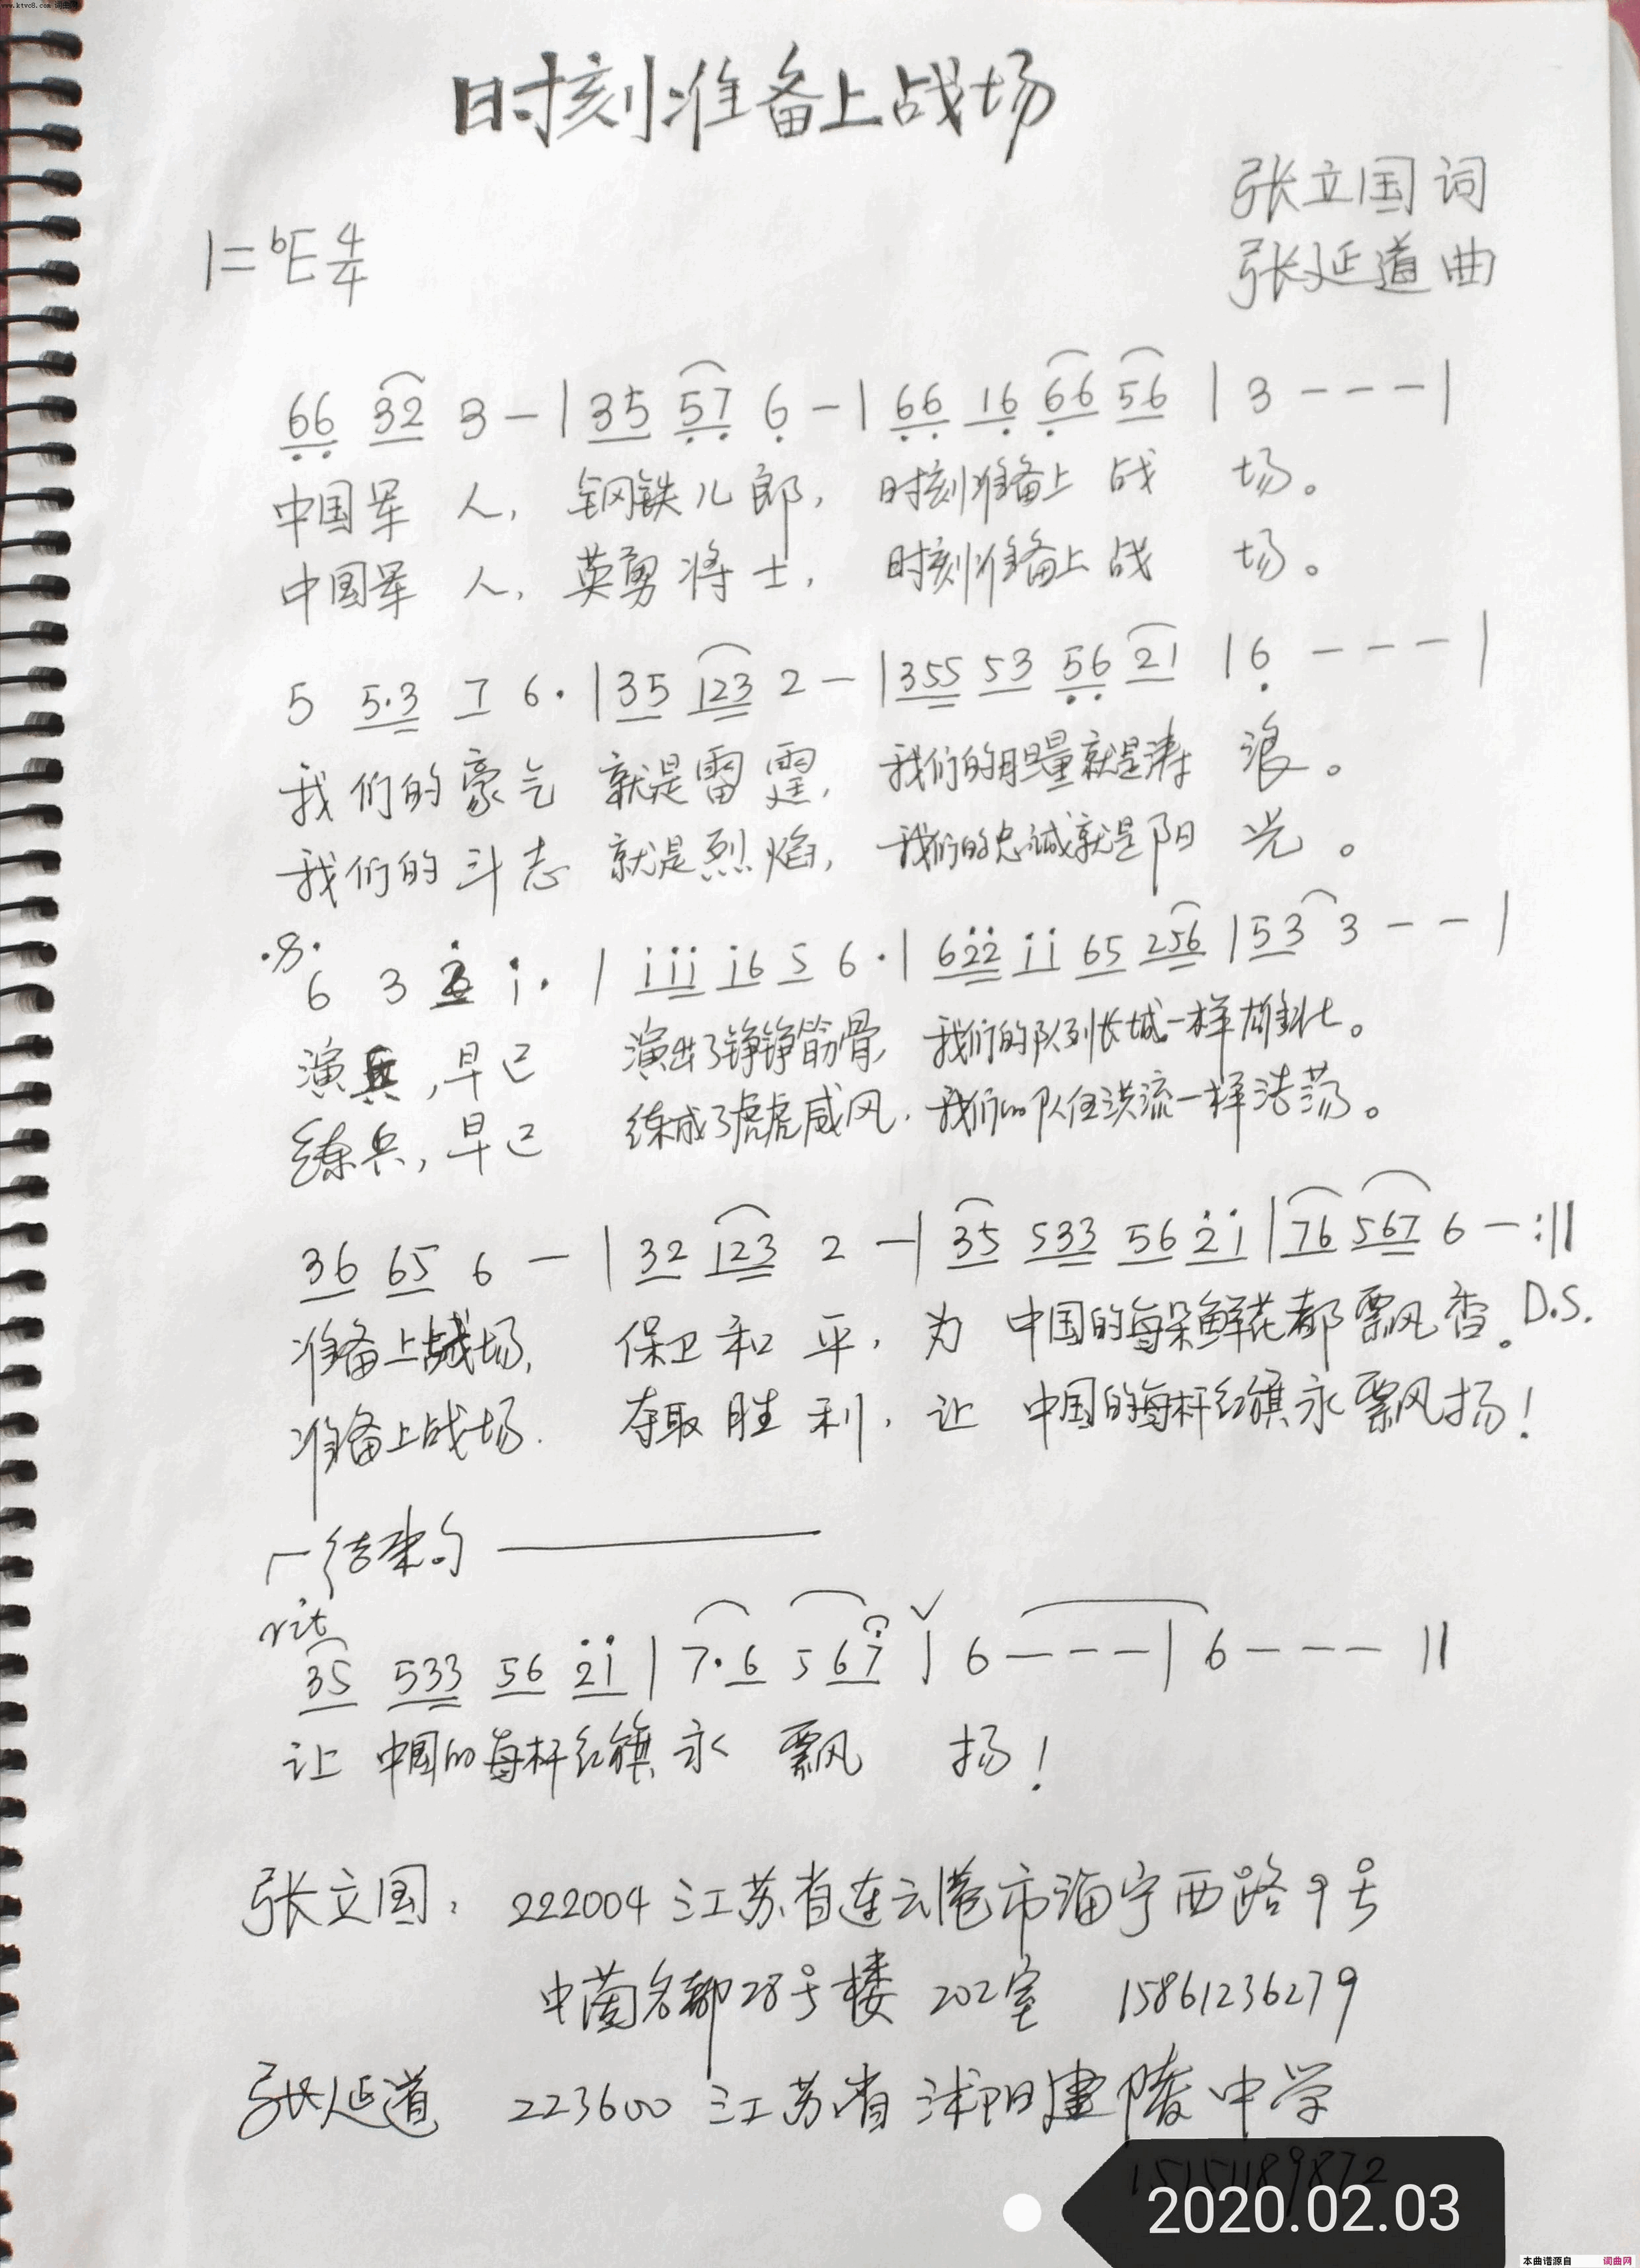 www.ktvc8.com
时刻准备上战场
张立国 词
1=bE 4/4
张延道 曲
66 32 3 - | 35 57 6 - | 66 16 66 56 | 3 - - - |
中国军 人, 钢铁儿郎, 时刻准备上 战 场。
中国军 人, 英勇将士, 时刻准备上 战 场。
5 5·3 7 6· | 35 123 2 - | 355 53 56 21 | 6 - - - |
我们的豪气 就是雷霆, 我们的胆量就是涛 浪。
我们的斗志 就是烈焰, 我们的忠诚就是阳 光。
6 3 2 i· | iii i6 5 6· | 622 ii 65 256 | 53 3 - - |
演兵,早已 演出了铮铮筋骨, 我们的队列长城一样雄壮。
练兵,早已 练成了虎虎威风, 我们的队伍洪流一样浩荡。
36 65 6 - | 32 123 2 - | 35 533 56 2i | 76 567 6 - :||
准备上战场, 保卫和平, 为 中国的每朵鲜花都飘香。 D.S.
准备上战场. 夺取胜利, 让 中国的每杆红旗永飘扬!
结束句
rit
35 533 56 2i | 7·6 5 67 | 6 - - - | 6 - - - ||
让 中国的每杆红旗 永 飘 扬!
张立国: 222004 江苏省连云港市海宁西路9号
中茵名都28号楼 202室 15861236279
张延道 223600 江苏省沭阳建陵中学
15151189872
2020.02.03
本曲谱源自 词曲网